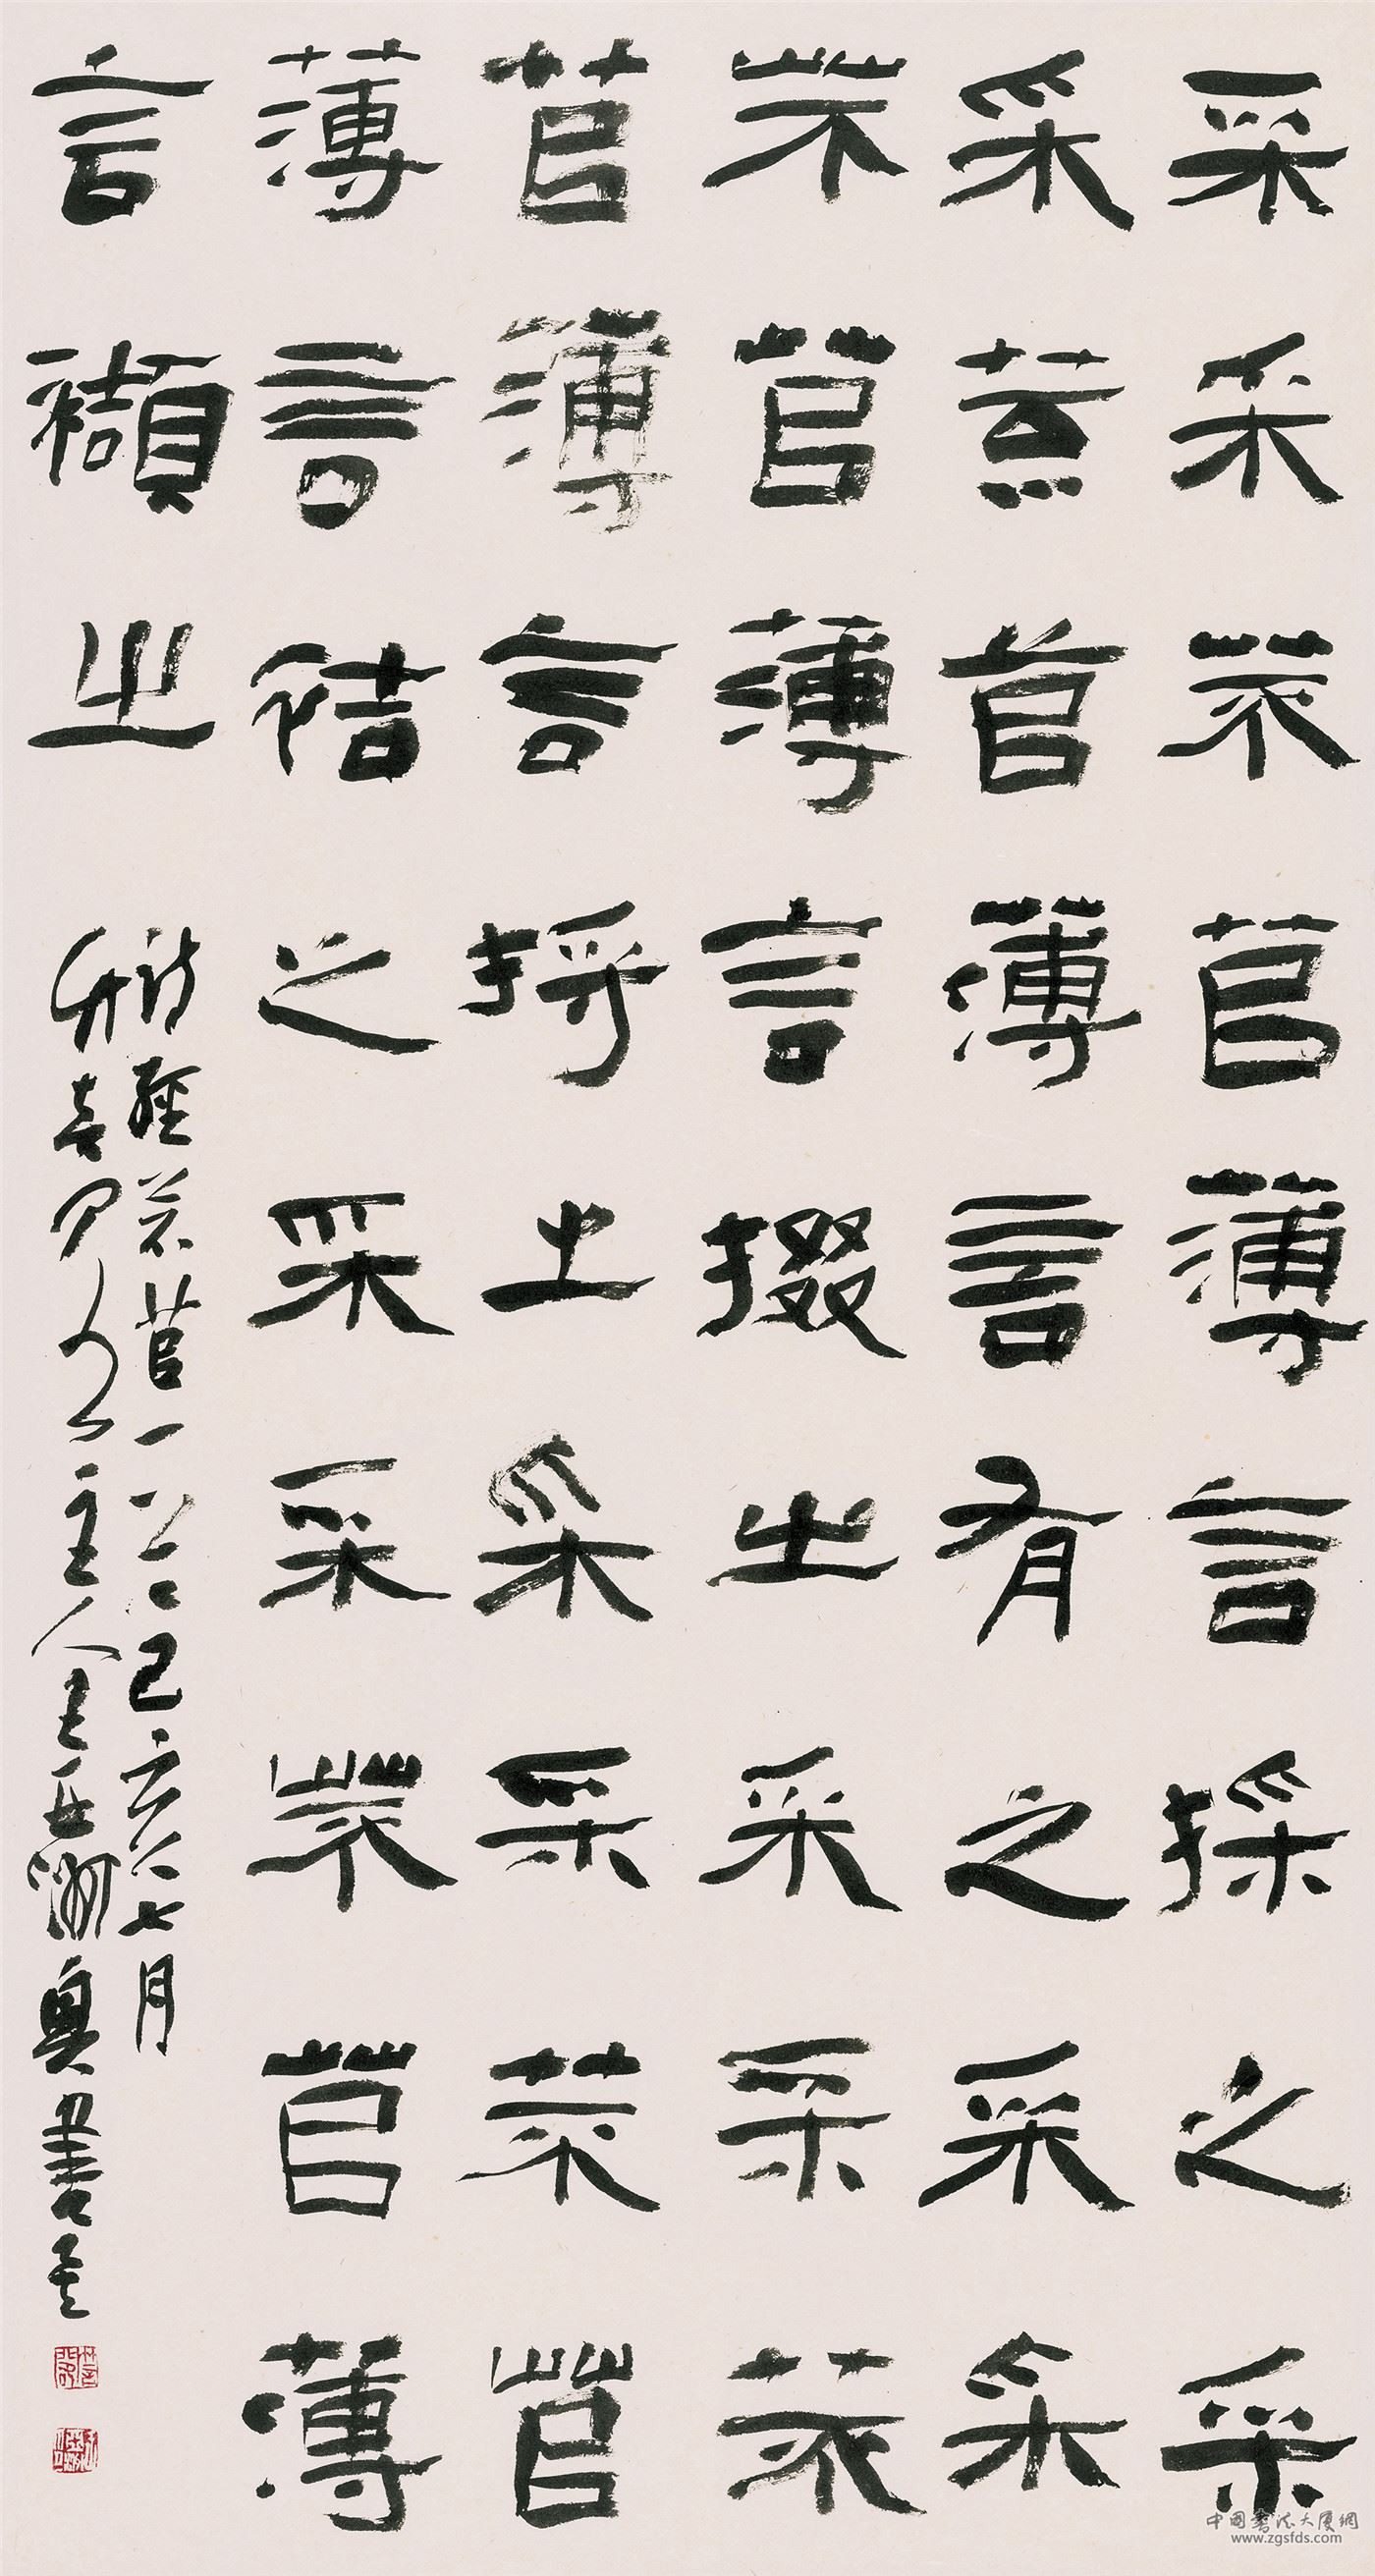 采采芣苢薄言採之采
采芣苢薄言有之采采
芣苢薄言掇之采采芣
苢薄言捋之采采芣苢
薄言袺之采采芣苢薄
言襭之
詩經芣苢一 己亥 七月
主人 書
中国書法大厦網
www.zgsfds.com